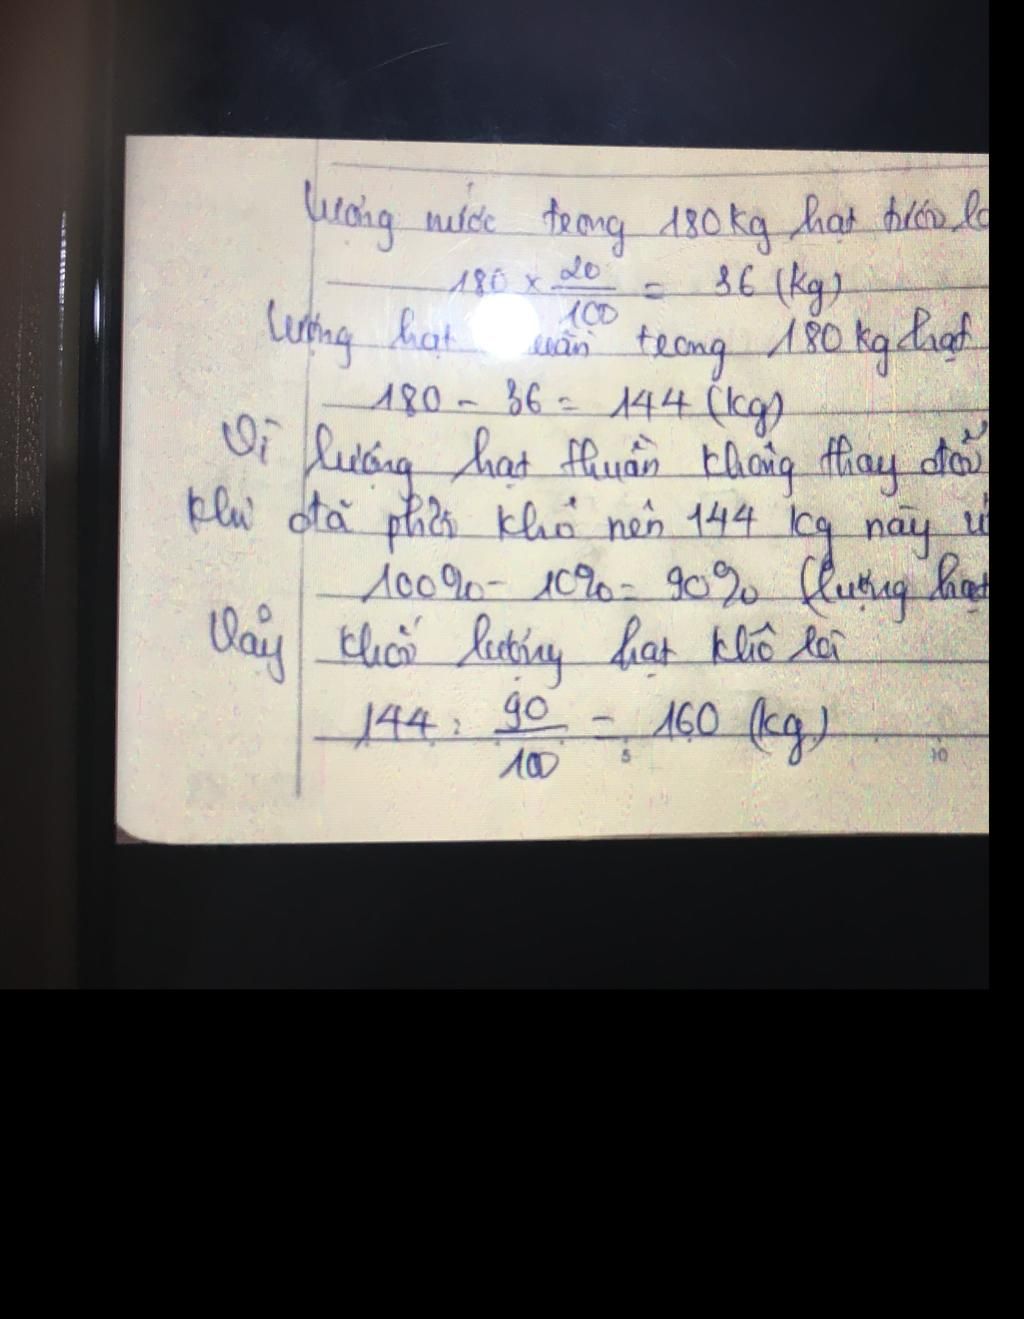 lượng nước trong 180 kg hạt tươi là
180 × 20/100 = 36 (kg)
lượng hạt trong 180 kg hạt
180 - 36 = 144 (kg)
Vì lượng hạt thuần không thay đổi
khi đã phơi khô nên 144 kg này
100% - 10% = 90% (lượng hạt
Vậy khối lượng hạt khô là
144 : 90/100 = 160 (kg)
5 10